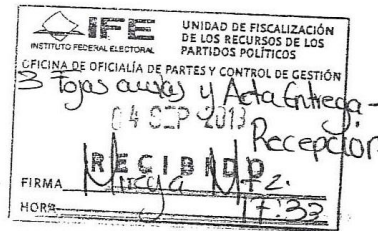 IFE
INSTITUTO FEDERAL ELECTORAL
UNIDAD DE FISCALIZACIÓN
DE LOS RECURSOS DE LOS
PARTIDOS POLÍTICOS
OFICINA DE OFICIALÍA DE PARTES Y CONTROL DE GESTIÓN
3 Fojas y Acta Entrega-
04 SEP 2013
Recepción
RECIBIDO
FIRMA Mtz.
HORA 17:33